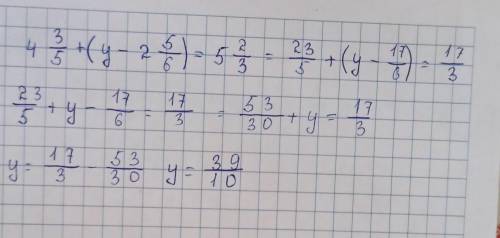 4 3/5 + (y - 2 5/6) = 5 2/3 = 23/5 + (y - 17/6) = 17/3
23/5 + y - 17/6 = 17/3 = 53/30 + y = 17/3
y = 17/3 - 53/30 y = 39/10